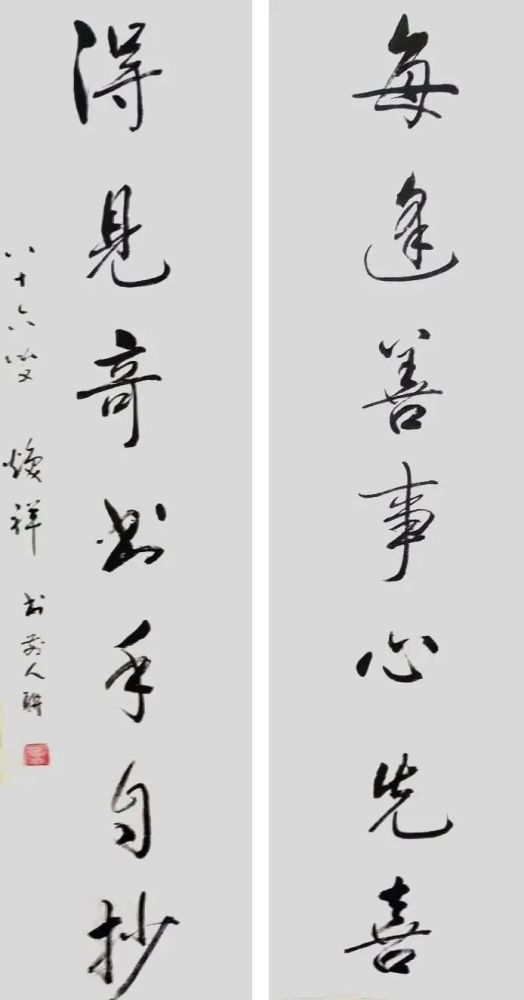 每逢善事心先喜
得见奇书手自抄
八十六叟 焕祥 书前人联